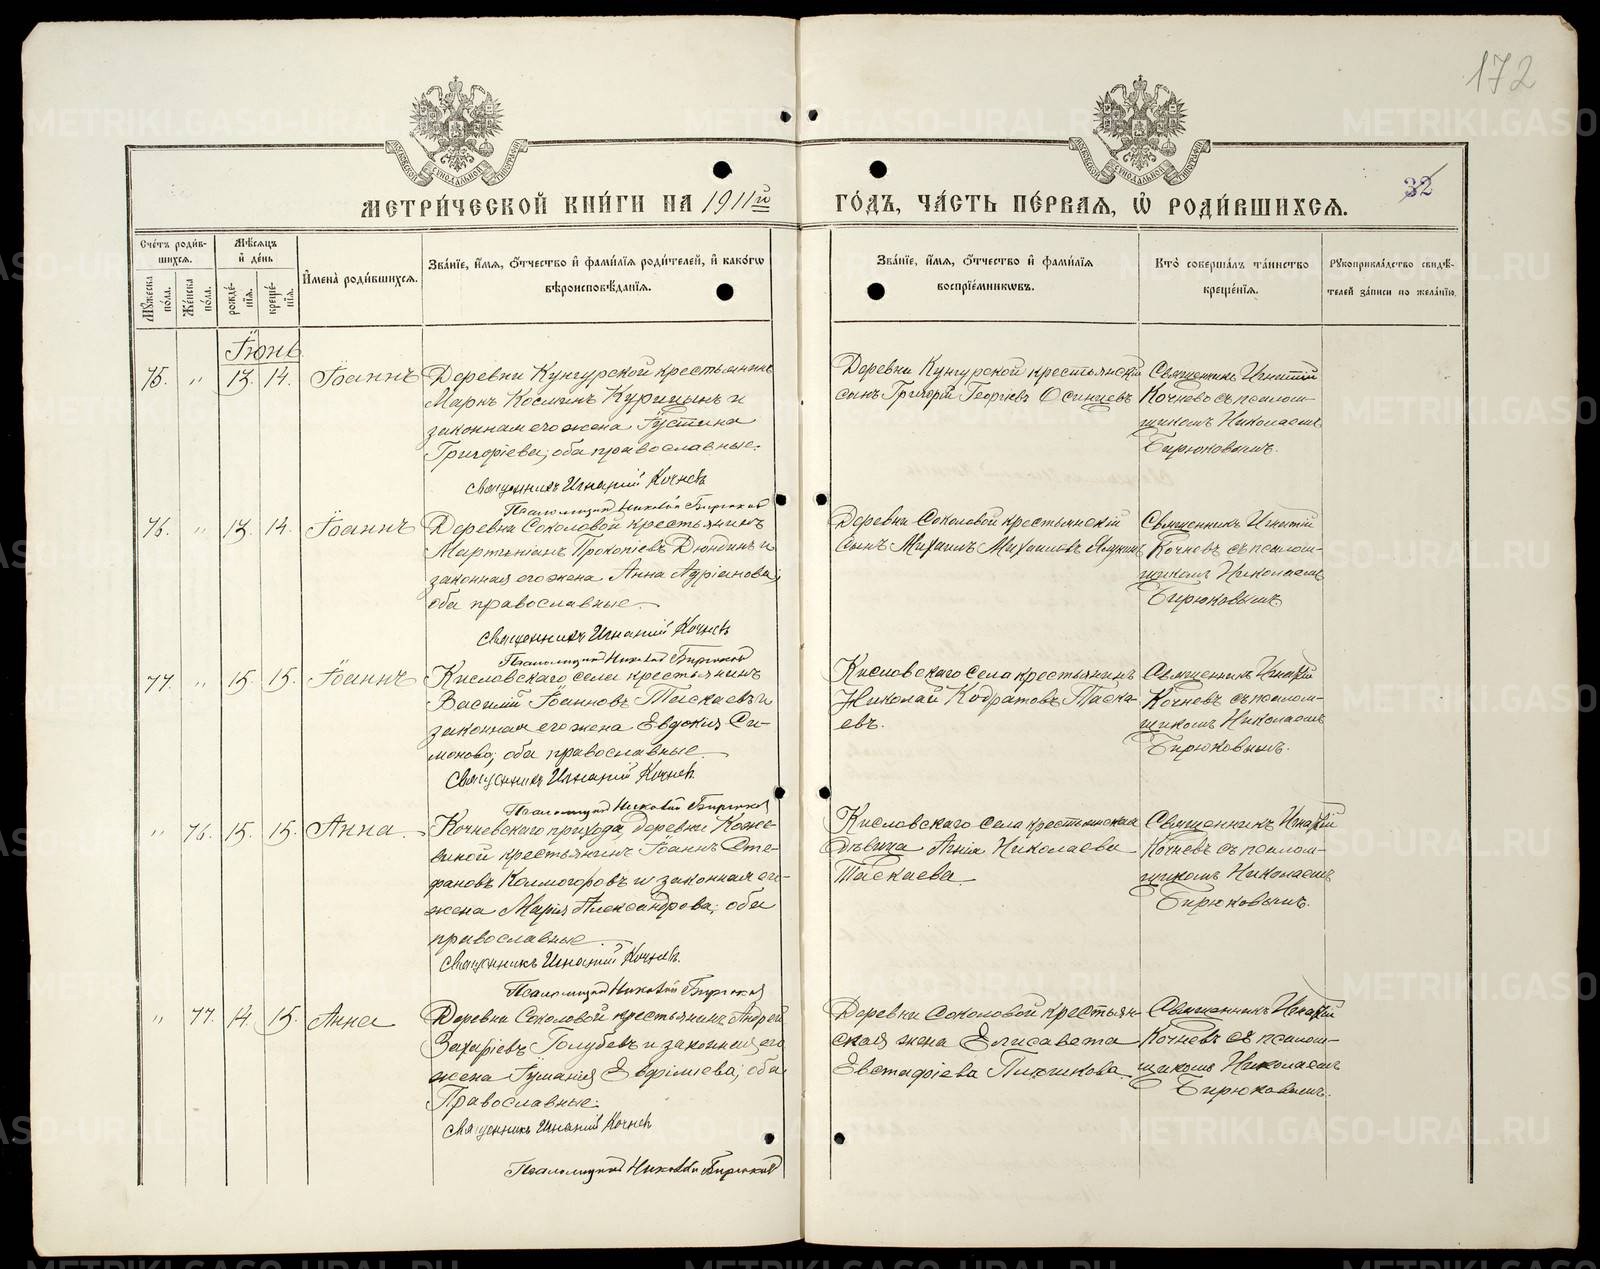 172
МЕТРИ́ЧЕСКОЙ КНИ́ГИ НА 1911й ГО́ДЪ, ЧА́СТЬ ПЕ́РВАЯ, Ѡ҆ РОДИ́ВШИХСЯ.
32
Сче́тъ роди́в-
шихся.
Мѣ́сяцъ
и҆ де́нь
И҆мена̀ роди́вшихся.
Зва́нїе, и҆́мя, ѻ҆́тчество и҆ фами́лїя роди́телей, и҆ како́гѡ
вѣроисповѣ́данїя.
Зва́нїе, и҆́мя, ѻ҆́тчество и҆ фами́лїя
воспрїе́мниковъ.
Кто̀ соверша́лъ та́инство
креще́нїя.
Рꙋкоприкла́дство свидѣ́-
телей за́писи по жела́нїю.
Мꙋ́жеска
по́ла.
Же́нска
по́ла.
рожде́-
нїя.
креще́-
нїя.
Іюнь
75. " 13. 14. Іоаннъ
Деревни Кунгурской крестьянинъ
Маркъ Космин Курицынъ и
законная его жена Іустина
Григоріева; оба православные.
Священникъ Игнатій Кочневъ
Псаломщикъ Николай Бирюков
Деревни Кунгурской крестьянскій
сынъ Григорій Георгіевъ Осинцевъ
Священникъ Игнатій
Кочневъ съ псалом-
щикомъ Николаемъ
Бирюковымъ.
76. " 13. 14. Іоаннъ
Деревни Соколовой крестьянинъ
Мартиніанъ Прокопіевъ Дюндинъ и
законная его жена Анна Адріанова;
оба православные.
Священникъ Игнатій Кочневъ
Псаломщикъ Николай Бирюков
Деревни Соколовой крестьянскій
сынъ Михаилъ Михаиловъ
Священникъ Игнатій
Кочневъ съ псалом-
щикомъ Николаемъ
Бирюковымъ.
77. " 15. 15. Іоаннъ
Кисловскаго села крестьянинъ
Василій Іоанновъ Таскаевъ и
законная его жена Евдокія Си-
монова; оба православные
Священникъ Игнатій Кочневъ
Псаломщикъ Николай Бирюков
Кисловскаго села крестьянинъ
Николай Кодратовъ Таска-
евъ.
Священникъ Игнатій
Кочневъ съ псалом-
щикомъ Николаемъ
Бирюковымъ.
" 76. 15. 15. Анна
Кочневскаго прихода, деревни Коже-
виной крестьянинъ Іоаннъ Сте-
фановъ Колмогоровъ и законная его
жена Марія Александрова; оба
православные
Священникъ Игнатій Кочневъ.
Псаломщикъ Николай Бирюков
Кисловскаго села крестьянская
дѣвица Агнія Николаева
Таскаева.
Священникъ Игнатій
Кочневъ съ псалом-
щикомъ Николаемъ
Бирюковымъ.
" 77. 14. 15. Анна
Деревни Соколовой крестьянинъ Андрей
Захаріевъ Голубевъ и законная его
жена Іуманія Евфиміева; оба
Православные.
Священникъ Игнатій Кочневъ
Псаломщикъ Николай Бирюков
Деревни Соколовой крестьян-
ская жена Елисавета
Евстафіева Плюснкова
Священникъ Игнатій
Кочневъ съ псалом-
щикомъ Николаемъ
Бирюковымъ.
METRIKI.GASO-URAL.RU